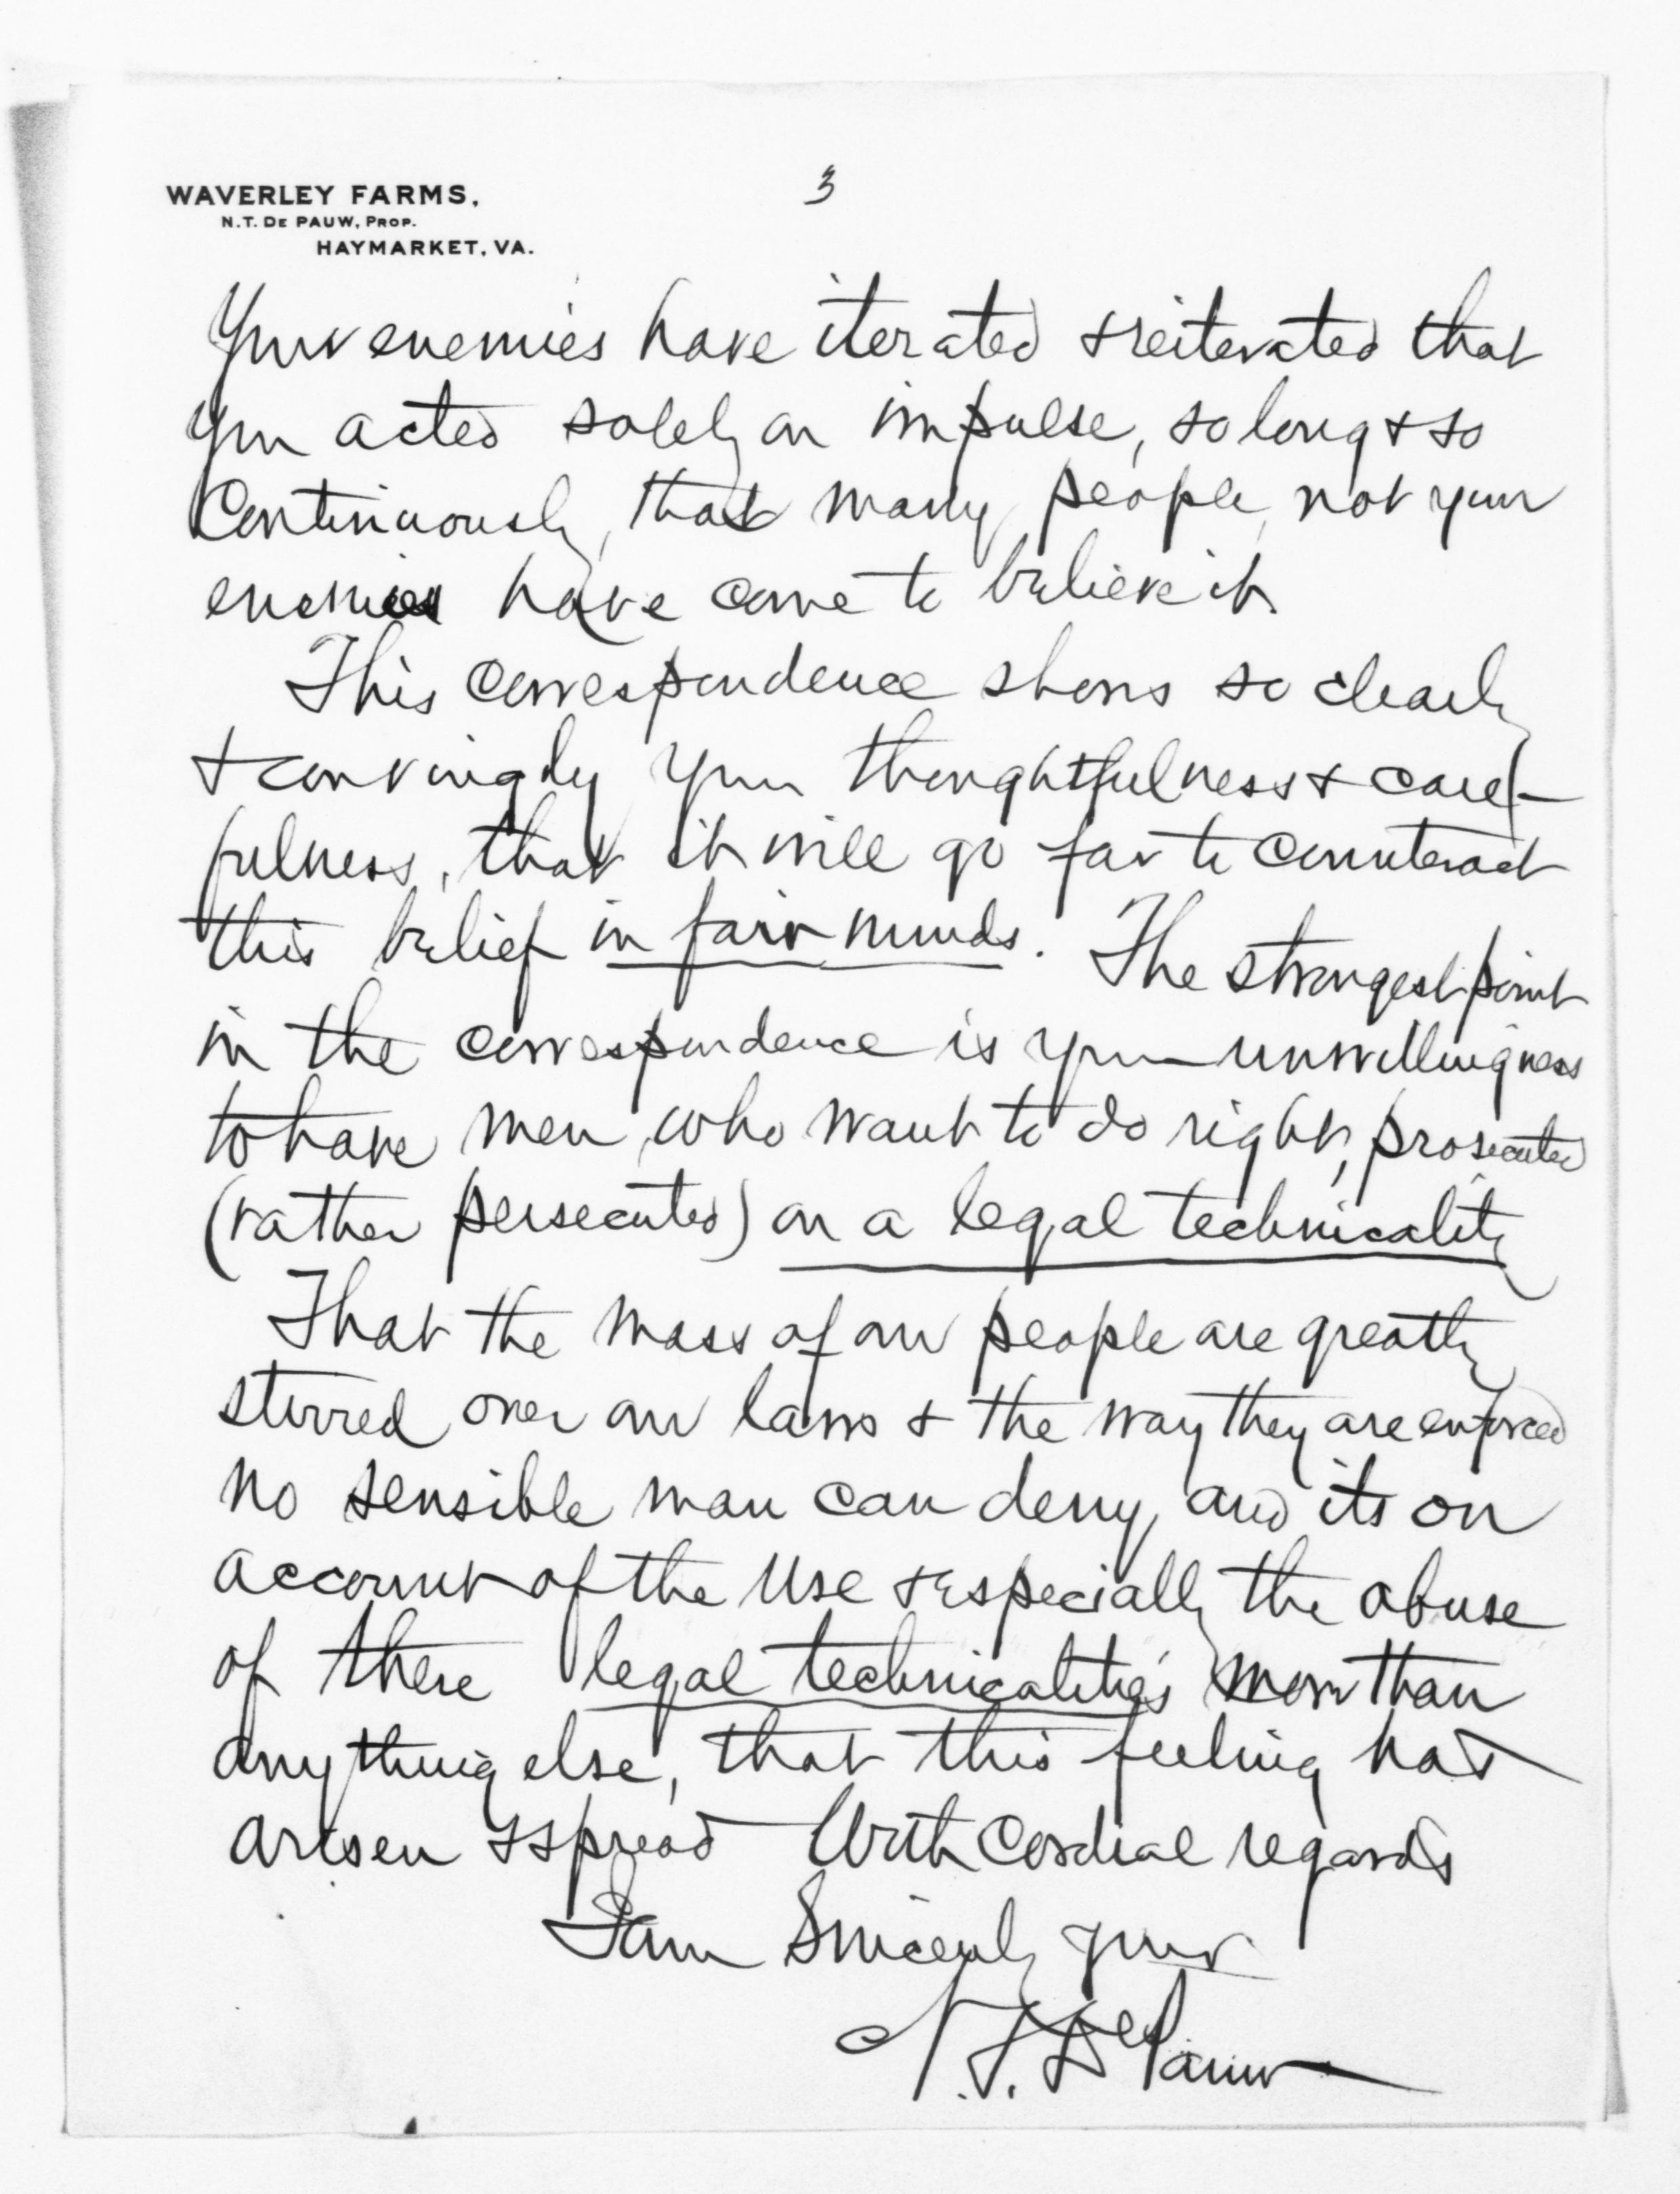 WAVERLEY FARMS,
N.T. DE PAUW, PROP.
HAYMARKET, VA.
3
Your enemies have iterated & reiterated that
you acted solely on impulse, so long & so
continuously, that many people, not your
enemies have come to believe it.
This correspondence shows so clearly
& convingly your thoughtfulness & care-
fulness, that it will go far to counteract
this belief in fair minds. The strongest point
in the correspondence is your unwillingness
to have men, who want to do right, prosecuted
(rather persecuted) on a legal technicality
That the mass of our people are greatly
stirred over our laws & the way they are enforced
no sensible man can deny, and its on
account of the use & especially the abuse
of these legal technicalities more than
anything else, that this feeling has
arisen & spread With cordial regards
I am Sincerely yours
N. T. DePauw